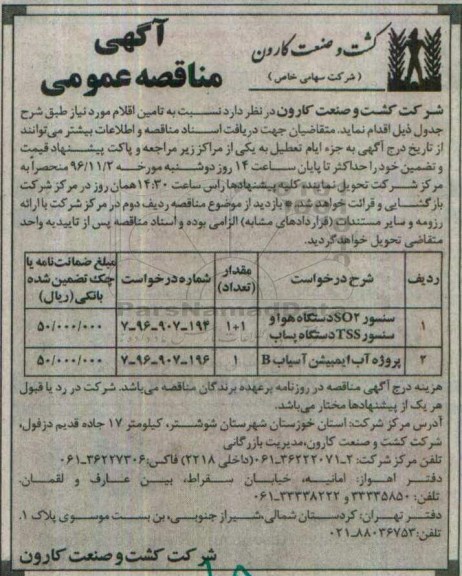 آگهی
مناقصه عمومی
کشت و صنعت کارون
( شرکت سهامی خاص )
شرکت کشت و صنعت کارون در نظر دارد نسبت به تامین اقلام مورد نیاز طبق شرح
جدول ذیل اقدام نماید. متقاضیان جهت دریافت اسناد مناقصه و اطلاعات بیشتر می‌توانند
از تاریخ درج آگهی به جزء ایام تعطیل به یکی از مراکز زیر مراجعه و پاکت پیشنهاد قیمت
و تضمین خود را حداکثر تا پایان ساعت ۱۴ روز دوشنبه مورخه ۹۶/۱۱/۲ منحصراً به
مرکز شرکت تحویل نمایند کلیه پیشنهادها راس ساعت ۱۴:۳۰ همان روز در مرکز شرکت
بازگشایی و قرائت خواهد شد. بازدید از موضوع مناقصه ردیف دوم در مرکز شرکت با ارائه
رزومه و سایر مستندات (قراردادهای مشابه) الزامی بوده و اسناد مناقصه پس از تاییدبه واحد
متقاضی تحویل خواهد گردید.
ردیف شرح درخواست مقدار (تعداد) شماره درخواست مبلغ ضمانت‌نامه یا چک تضمین شده بانکی (ریال)
۱ سنسور SO۲ دستگاه هوا و سنسور TSS دستگاه پساب ۱+۱ ۷-۹۶-۹۰۷-۱۹۴ ۵۰/۰۰۰/۰۰۰
۲ پروژه آب ایمبیشن آسیاب B ۱ ۷-۹۶-۹۰۷-۱۹۶ ۵۰/۰۰۰/۰۰۰
هزینه درج آگهی مناقصه در روزنامه بر عهده برندگان مناقصه می‌باشد. شرکت در رد یا قبول
هر یک از پیشنهادها مختار می‌باشد.
آدرس مرکز شرکت: استان خوزستان شهرستان شوشتر، کیلومتر ۱۷ جاده قدیم دزفول،
شرکت کشت و صنعت کارون، مدیریت بازرگانی
تلفن مرکز شرکت: ۲-۳۶۲۲۲۰۷۱-۰۶۱(داخلی ۲۲۱۸) فاکس: ۳۶۲۲۷۳۰۶-۰۶۱
دفتر اهواز: امانیه، خیابان سقراط، بین عارف و لقمان.
تلفن: ۳۳۳۳۵۸۵۰ و ۳۳۳۳۸۲۲۲-۰۶۱
دفتر تهران: کردستان شمالی، شیراز جنوبی، بن بست موسوی پلاک ۱.
تلفن: ۸۸۰۳۶۷۵۳-۰۲۱
شرکت کشت و صنعت کارون